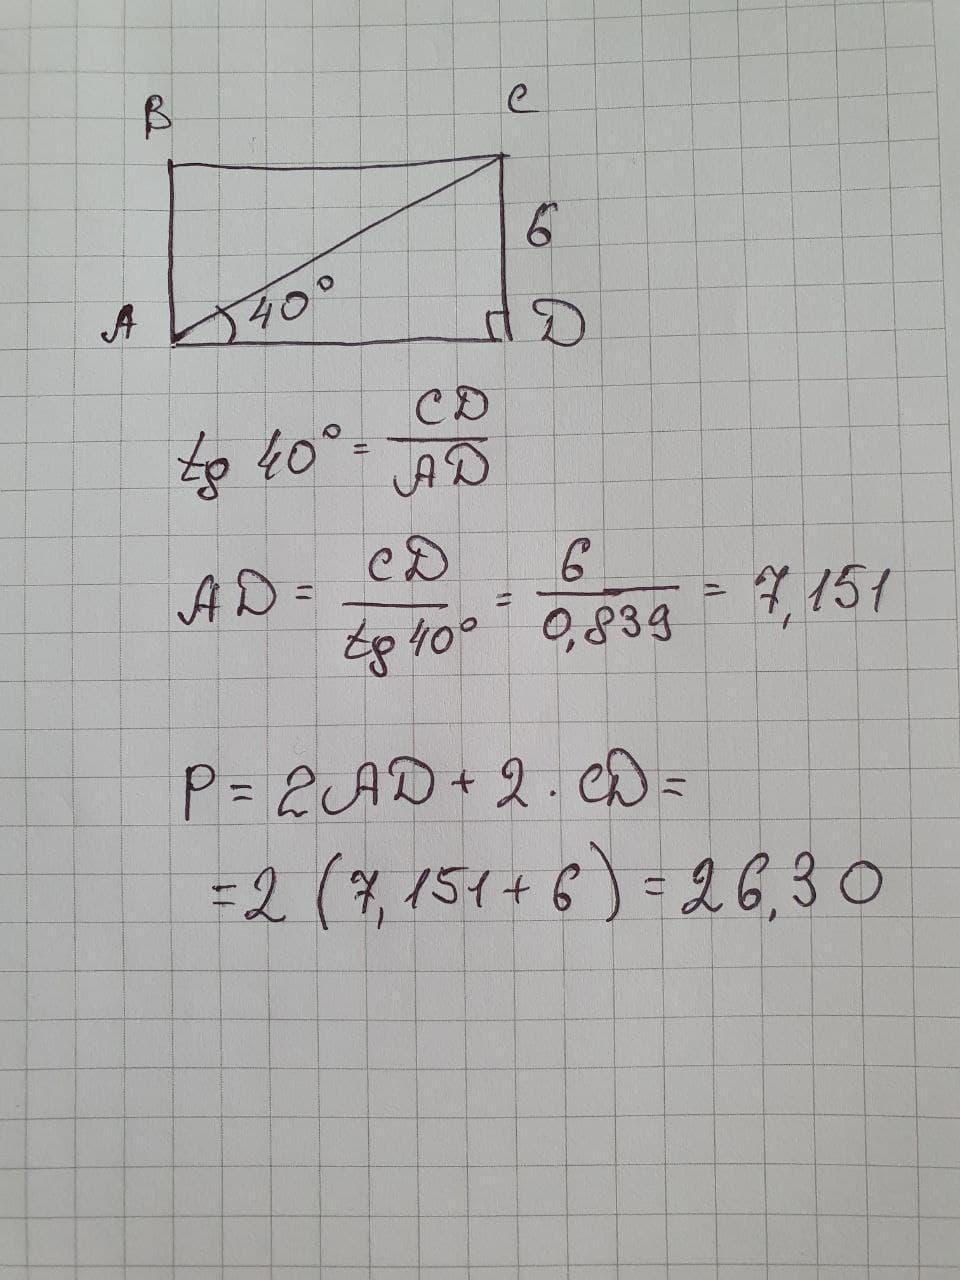 B C
6
A 40° D
tg 40° = CD / AD
AD = CD / tg 40° = 6 / 0,839 = 7,151
P = 2 AD + 2 · CD =
= 2 (7,151 + 6) = 26,30